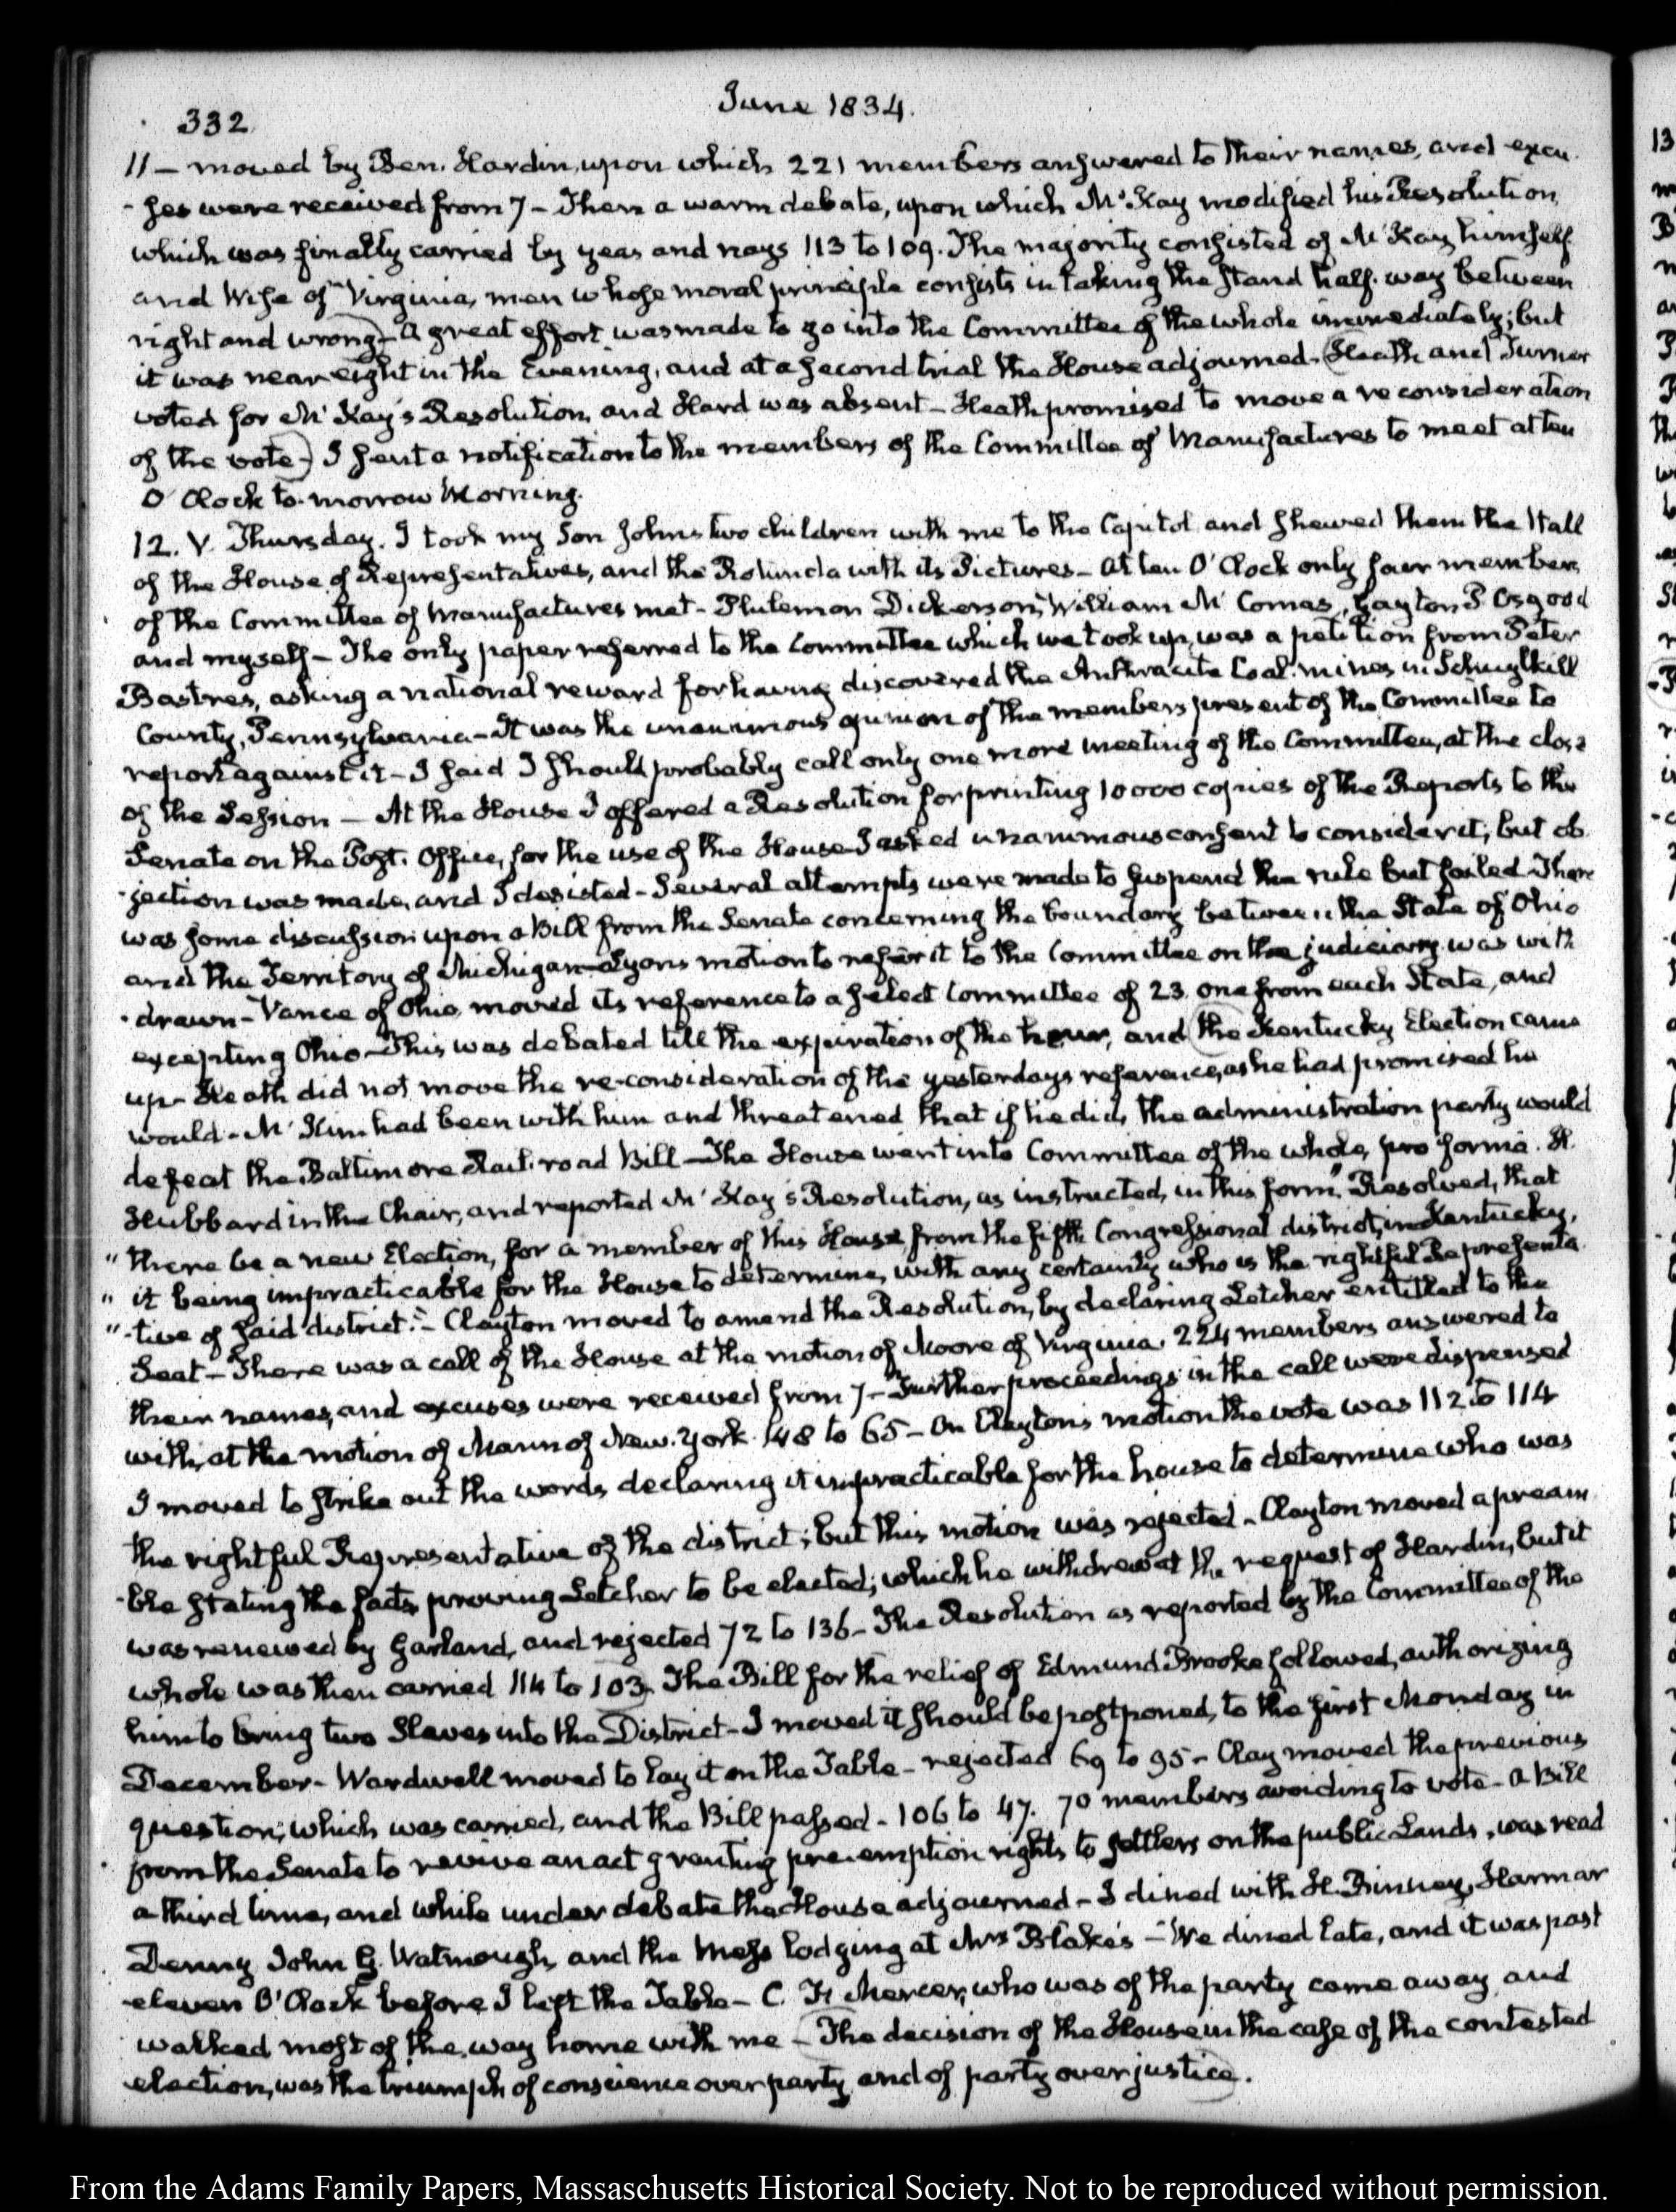 332
June 1834.
11 — moved by Ben. Hardin, upon which 221 members answered to their names, and excu-
-ses were received from 7 — Then a warm debate, upon which McKay modified his Resolution,
which was finally carried by yeas and nays 113 to 109. The majority consisted of McKay himself
and Wise of Virginia, men whose moral principle consists in taking the stand half-way between
right and wrong — A great effort was made to go into the Committee of the whole immediately; but
it was near eight in the Evening, and at a second trial the House adjourned. (Heath and Turner
voted for McKay's Resolution, and Hard was absent — Heath promised to move a reconsideration
of the vote —) I sent a notification to the members of the Committee of Manufactures to meet at ten
O'Clock to-morrow Morning.
12. V. Thursday. I took my Son John's two children with me to the Capitol and shewed them the Hall
of the House of Representatives, and the Rotunda with its Pictures — At ten O'Clock only four members
of the Committee of Manufactures met — Philemon Dickerson, William McComas, Gayton P. Osgood
and myself — The only paper referred to the Committee which we took up, was a petition from Peter
Bastres, asking a national reward for having discovered the Anthracite Coal-mines in Schuylkill
County, Pennsylvania — It was the unanimous opinion of the members present of the Committee to
report against it — I said I should probably call only one more meeting of the Committee, at the close
of the Session — At the House I offered a Resolution for printing 10000 copies of the Reports to the
Senate on the Post-Office, for the use of the House I asked unanimous consent to consider it; but ob-
-jection was made, and I desisted — Several attempts were made to suspend the rule but failed. There
was some discussion upon a Bill from the Senate concerning the boundary between the State of Ohio
and the Territory of Michigan — Lyons motion to refer it to the Committee on the judiciary was with
-drawn — Vance of Ohio, moved its reference to a select Committee of 23. one from each State, and
excepting Ohio — This was debated till the expiration of the hour, and (the Kentucky Election came
up — Heath did not move the re-consideration of the yesterdays reference, as he had promised he
would — McKim had been with him and threatened that if he did, the administration party would
defeat the Baltimore Rail-road Bill — The House went into Committee of the whole, pro forma. H.
Hubbard in the Chair, and reported McKay's Resolution, as instructed, in this form "Resolved, that
" there be a new Election, for a member of this House from the fifth Congressional district, in Kentucky,
" it being impracticable for the House to determine, with any certainty who is the rightful Representa-
" -tive of said district." — Clayton moved to amend the Resolution, by declaring Letcher entitled to the
Seat — There was a call of the House at the motion of Moore of Virginia. 224 members answered to
their names, and excuses were received from 7 — Further proceedings in the call were dispensed
with, at the motion of Mann of New-York 148 to 65 — On Clayton's motion the vote was 112 to 114
I moved to strike out the words declaring it impracticable for the house to determine who was
the rightful Representative of the district; but this motion was rejected — Clayton moved a pream
-ble stating the facts, proving Letcher to be elected; which he withdrew at the request of Hardin, but it
was renewed by Garland, and rejected 72 to 136 — The Resolution as reported by the Committee of the
whole was then carried 114 to 103. The Bill for the relief of Edmund Brooke followed, authorizing
him to bring two Slaves into the District — I moved it should be postponed, to the first Monday in
December — Wardwell moved to lay it on the Table — rejected 69 to 95 — Clay moved the previous
question; which was carried, and the Bill passed — 106 to 47. 70 members avoiding to vote — A Bill
from the Senate to revive an act granting pre-emption rights to settlers on the public Lands, was read
a third time, and while under debate the House adjourned — I dined with H. Binney, Harmar
Denny, John G. Watmough, and the Mess lodging at Mrs Blake's — We dined late, and it was past
eleven O'Clock before I left the Table — C. F. Mercer, who was of the party came away and
walked most of the way home with me — (The decision of the House in the case of the contested
election, was the triumph of conscience over party and of party over justice).
From the Adams Family Papers, Massachusetts Historical Society. Not to be reproduced without permission.